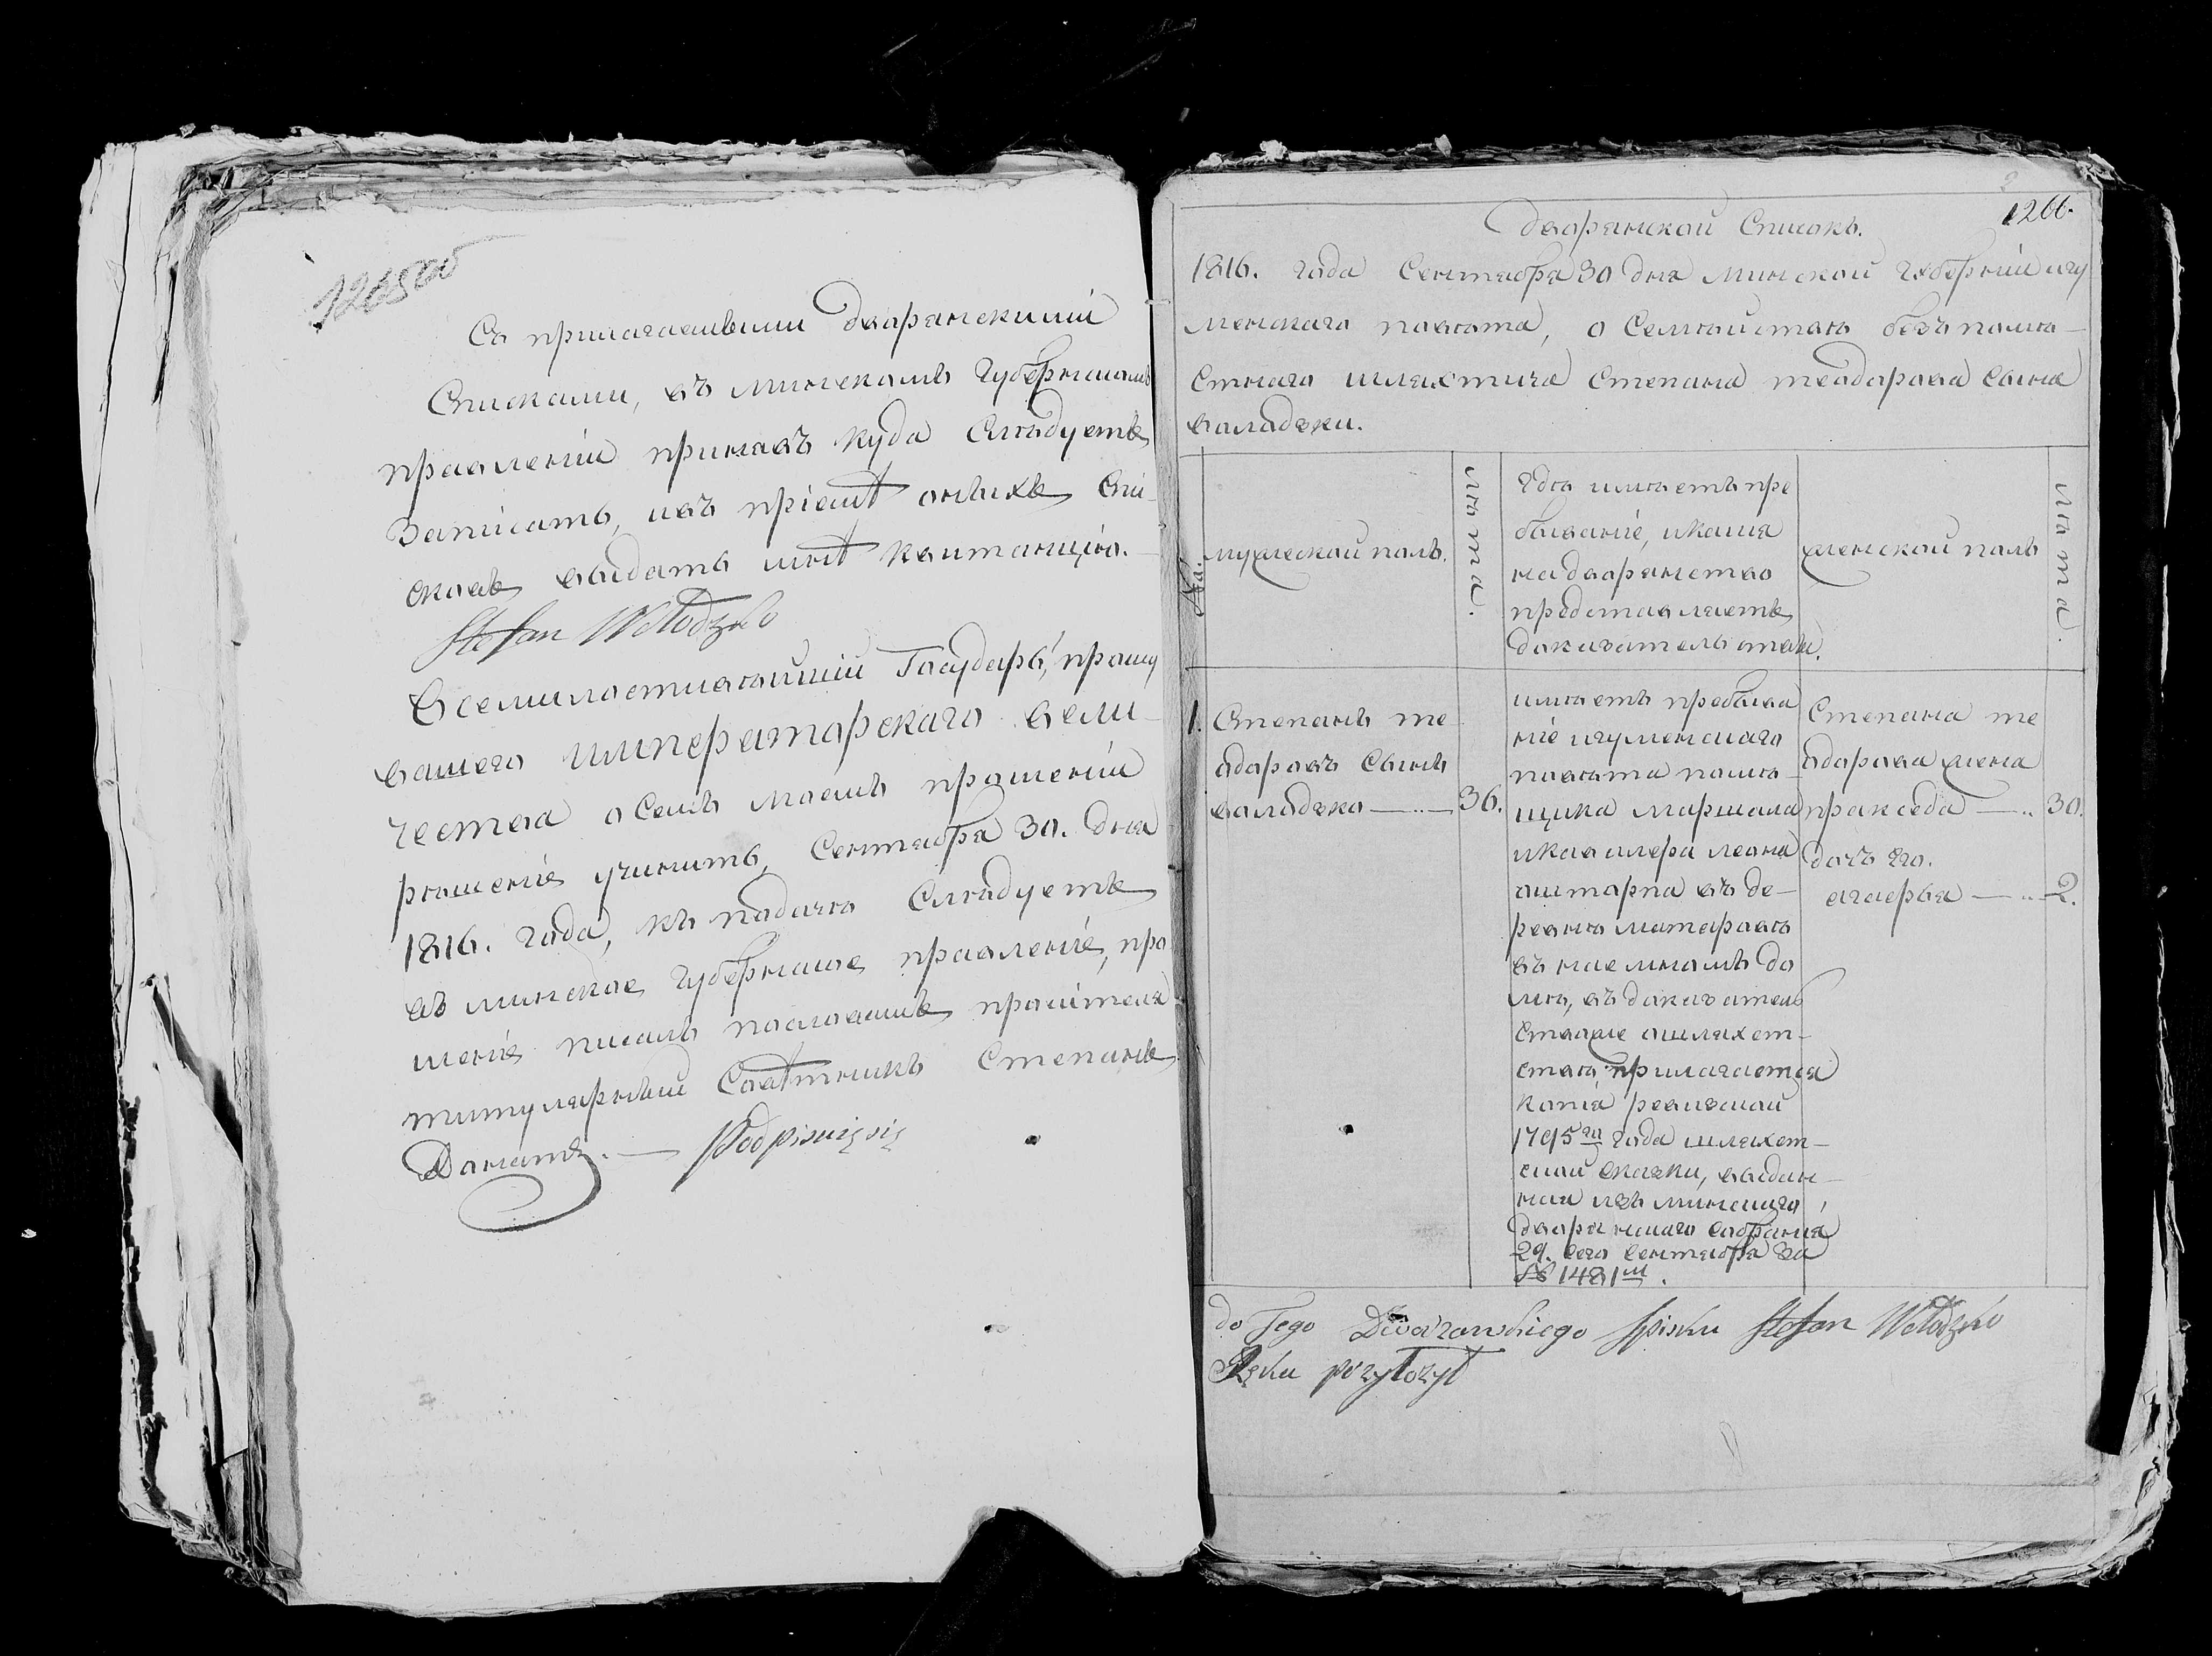 1265 об
Съ прилагаемыми дворянскими
Списками, въ минскомъ губернскомъ
правленіи принявъ куда Слѣдуетъ
Записать, ивъ пріемѣ оныхъ Спи-
сковъ выдать мнѣ квитанцію.
Stefan Wołodzko
Всемилостивѣйшій Государь, прошу
вашего императорскаго вели-
чества о Семъ моемъ прошеніи
рѣшеніе учинить, Сентября 30. дня
1816. года, къ подачѣ Слѣдуетъ
въ минское губернское правленіе, про
шеніе писалъ пословамъ просителя
титулярный Совѣтникъ Степанъ
Podpisuię się
1266.
дворянской Списокъ.
1816. года Сентября 30 дня минской губерніи игу
менскаго повѣта, о Семѣйствѣ безъ помѣ-
стнаго шляхтича Степана теодорова сына
володзки.
№.
мужескои полъ.
лѣта.
Гдѣ имѣетъ пре
бываніе, икакія
надворянство
представляетъ
доказательства.
женской полъ
лѣта.
1. Степанъ те
одоровъ Сынъ
володзко — 36.
имѣетъ пребыва
ніе игуменскаго
повѣта помѣ-
щика маршала
икавалера леона
оштарпа въ де-
ревнѣ матеровѣ
въ наемномъ до
мѣ, въ доказатель
ствоже ошляхет-
ствѣ прилагается
копія ревизской
1795го года шляхет-
ской сказки, выдан-
ная изъ минскаго
дворянскаго собранія
29. сего сентября за
№ 1481м.
Степана те
одорова жена
пракседа — 30.
дочъ его.
— 2.
do Tego Dworzanskiego Spisku Stefan Wołodzko
Rękę przyłożył